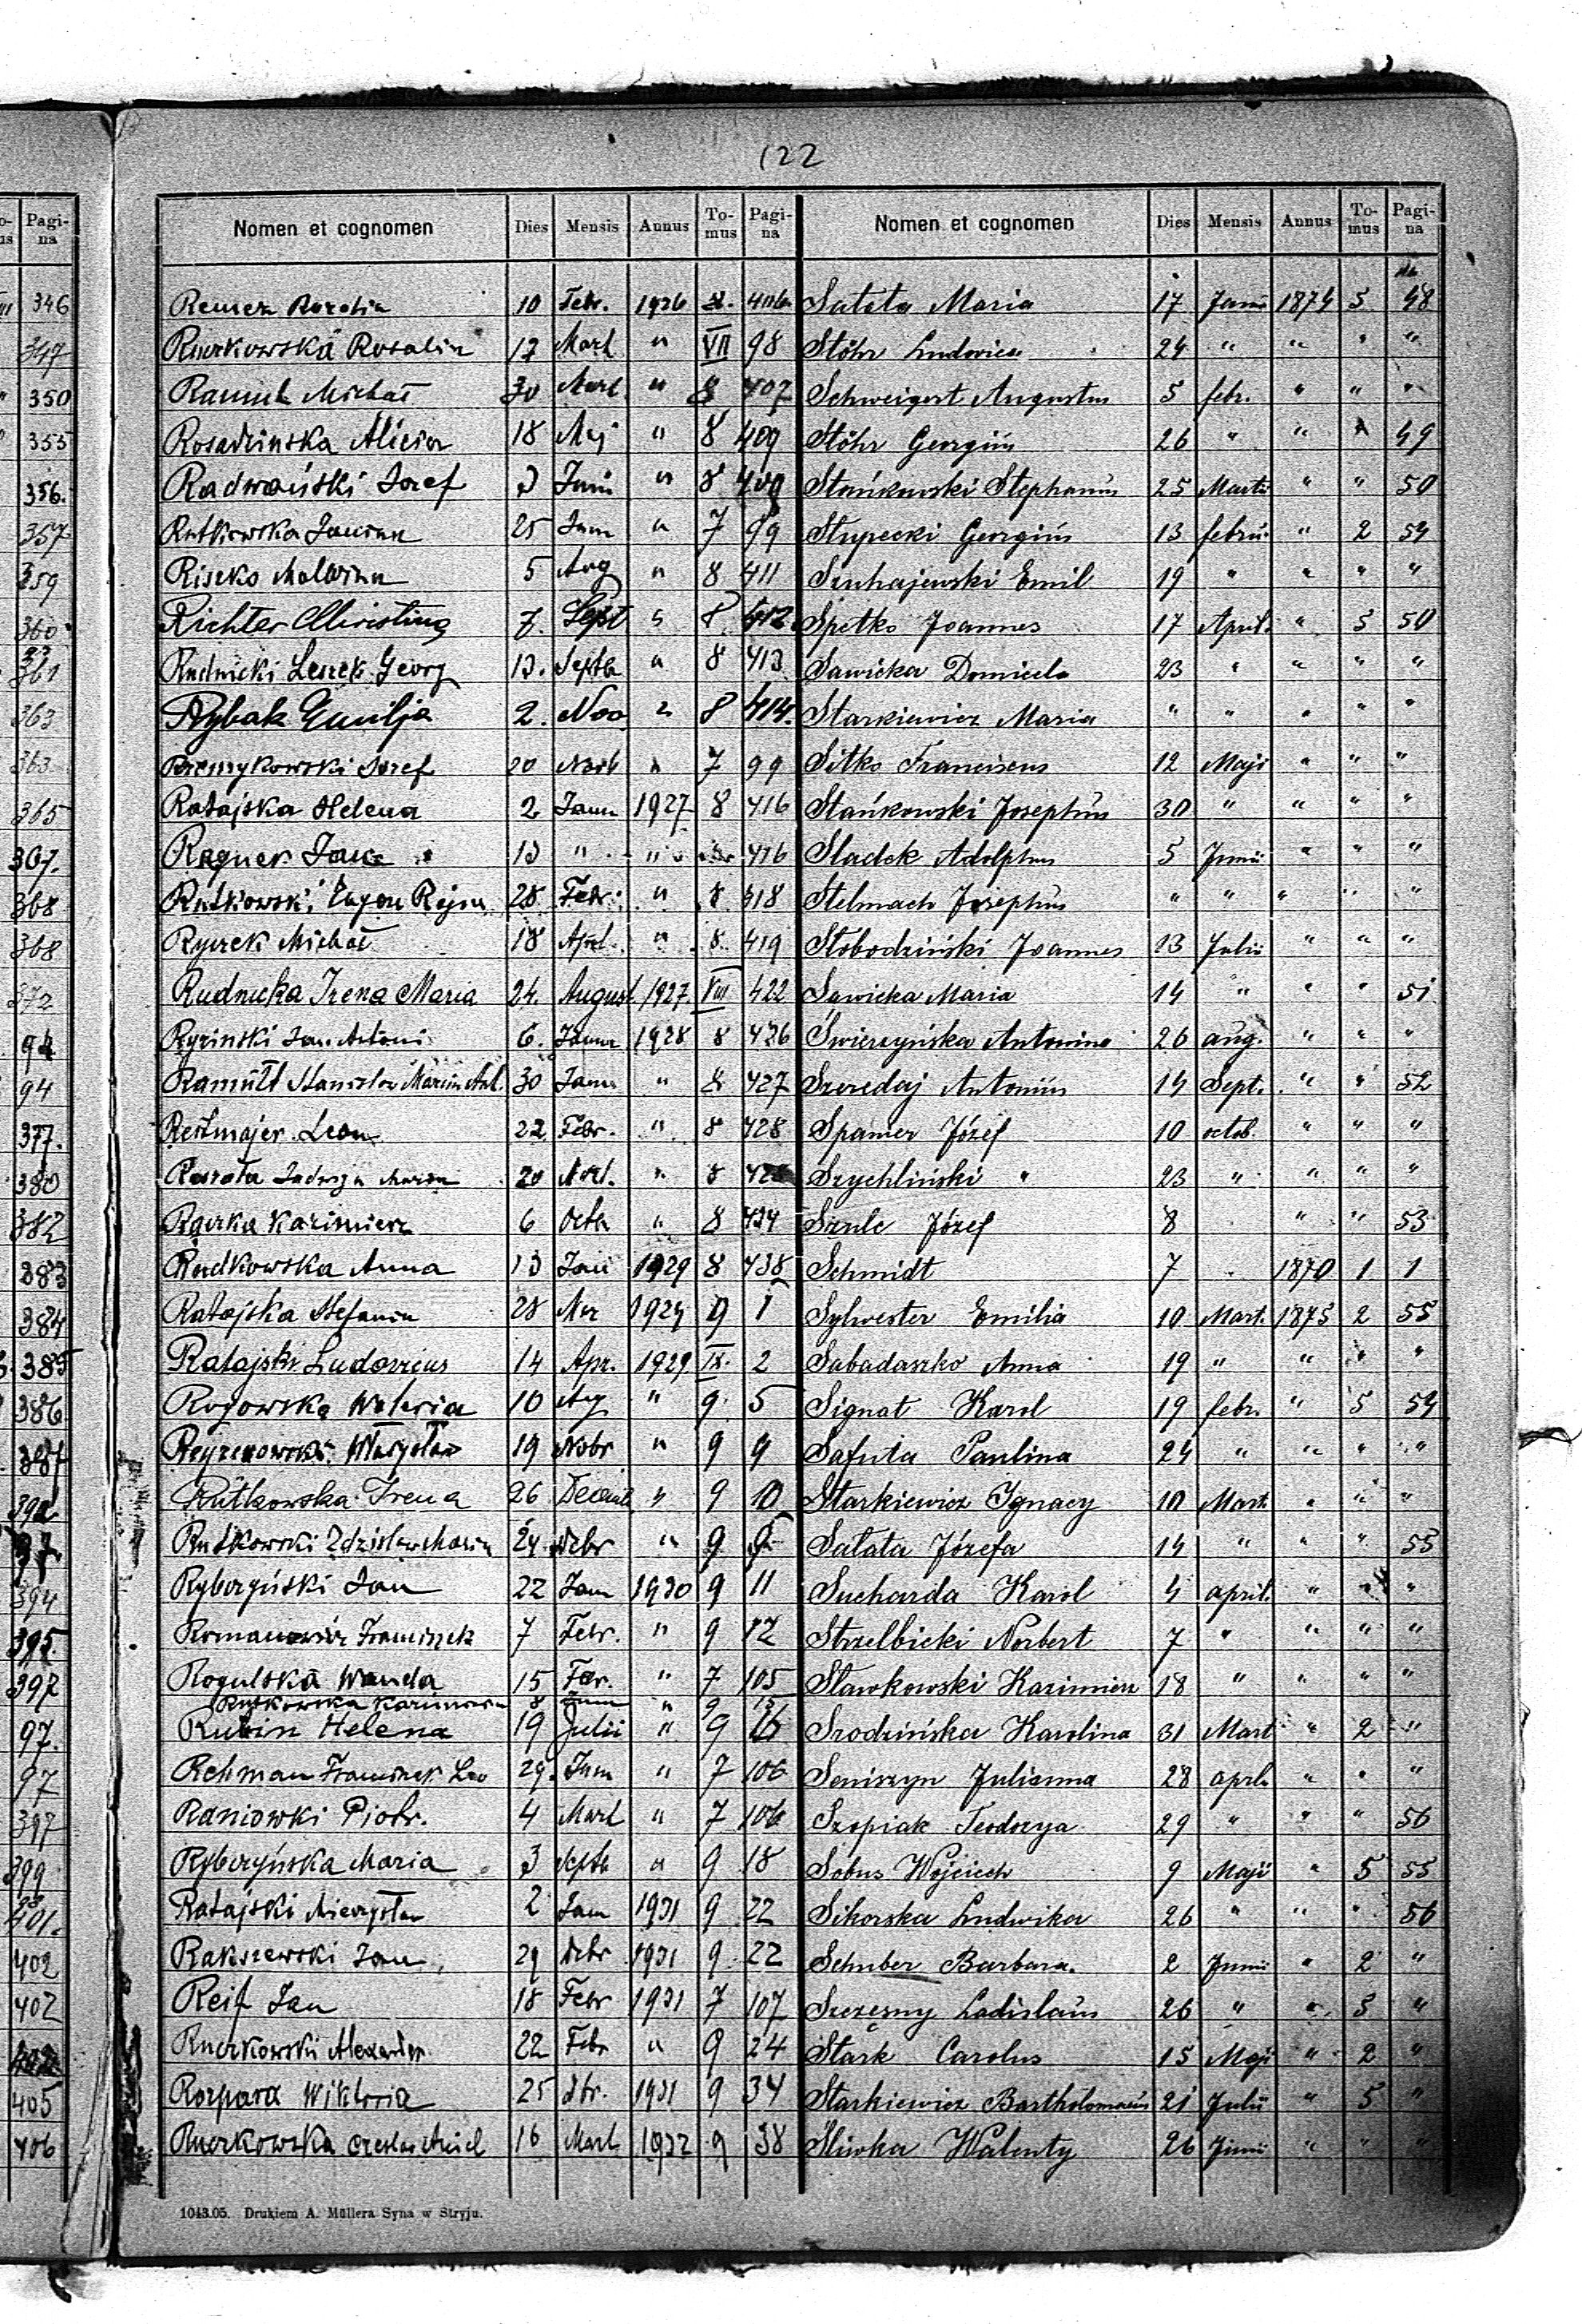 122
Pagina
346
347
350
355
356.
357
359
360
361
363
363
365
367.
368
368
372
94
94
377.
380
382
383
384
385
386
387
392
97
394
395.
397
97.
97
397
399
401.
402
402
405
406
Nomen et cognomen Dies Mensis Annus Tomus Pagina
10 Febr. 1926
Ruczkowska Rosalia 17 Mart " VII 98
Ramult Michał 30 Mart. " 8 407
Rosadzinska Alicia 18 Maj " 8 409
Radwański Josef 3 Junii " 8 409
Rutkowska Janina 25 Jun " 7 99
Riseko Malwina 5 Aug " 8 411
Richter Christina 7. Sept " 8 412
Rudnicki Leszek Georg 13. Septb " 8 413
Rybak Emilja 2. Nov " 8 414.
Josef 20 Novb " 7 99
Ratajska Helena 2 Janu 1927 8 416
13 " " 416
Rutkowski 28 Febr. " 8 418
Rycrek Michał 18 Apr. " 8. 419
Rudnicka Irena Maria 24. August 1927. VIII 422
Ryzinski Jan Antoni 6. Janu 1928 8 426
Ramułt Stanislav Marcin Ant. 30 Janu " 8 427
Reitmajer Leon 22 Febr. " 8 428
Jadwiga Maria 20 " 8
Kazimierz 6 Octb " 8 434
Rudkowska Anna 13 1929 8 438
Ratajska Stefania 28 Mar 1929 9 1
Ratajski Ludovicus 14 Apr. 1929 IX. 2
Rogowska Waleria 10 Aug " 9. 5
19 Nobr " 9 9
Rutkowska Irena 26 " 9 10
Rutkowski Zdzislaw Maria 24 " 9 9
Ryberzyński Jan 22 Jan 1930 9 11
Romanowicz Franciszek 7 Febr. " 9 12
Rogulska Wanda 15 " 7 105
Rutkowska 8 " 9 15
Rubin Helena 19 Julii " 9 16
Rehman Franciszek Leo 29. Jun " 7 106
Raniowski Piotr. 4 Mart " 7 106
Ryberzyńska Maria 3 Septb " 9 18
Ratajski Mieczysław 2 Jan 1931 9 22
Rakszewski Jan 29 1931 9 22
Reif Jan 18 Febr 1931 7 107
Ruczkowski Alexander 22 Febr " 9 24
Rozpara Wiktoria 25 1931 9 34
Ruczkowska 16 Mart 1932 9 38
Nomen et cognomen Dies Mensis Annus Tomus Pagina
Sałata Maria 17 1874 5 48
Stöhr Ludovica 24 " " " "
Schweigert Augustus 5 febr. " " "
Stöhr Georgius 26 " " 49
Stańkowski Stephanus 25 Martii " " 50
Stupecki Georgius 13 febru. " 2 54
Szuhajewski Emil 19 " " " "
Spetko Joannes 17 April. " 5 50
Sawicka Domicela 23 " " " "
Starkiewicz Maria " " " " "
Sitko Franciscus 12 Maji " " "
Stańkowski Josephus 30 " " " "
Sladek Adolphus 5 Junii " " "
Stelmach Josephus " " " " "
Słobodziński Joannes 13 Julii " " "
Sawicka Maria 14 " " " 51
Świerzyńska Antonina 26 aug. " " "
Szeredaj Antonius 14 Sept. " " 52
Spamer Józef 10 octob. " " "
Szychliński " 23 " " " "
Szulc Józef 8 " " 53
Schmidt 7 1870 1 1
Sylvester Emilia 10 Mart. 1875 2 55
Sabadaszko Anna 19 " " " "
Signat Karol 19 febr. " 5 54
Safuta Paulina 24 " " " "
Starkiewicz Ignacy 10 Mart. " " "
Sałata Józefa 14 " " " 55
Sucharda Karol 4 april. " " "
Strzelbicki Norbert 7 " " " "
Sławkowski Kazimierz 18 " " " "
Szodzińska Karolina 31 Mart " 2 "
Seniszyn Julianna 28 aprl. " " "
Szopiak Teodozya 29 " " " 56
Sobus Wojciech 9 Maji " 5 55
Sikorska Ludwika 26 " " " 56
Schuber Barbara. 2 Junii " 2 "
Szczęsny Ladislaus 26 " " 5 "
Stark Carolus 15 Maji " 2 "
Starkiewicz Bartholomaeus 21 Julii " 5 "
Śliwka Walenty 26 Junii " " "
1043.05. Drukiem A. Müllera Syna w Stryju.